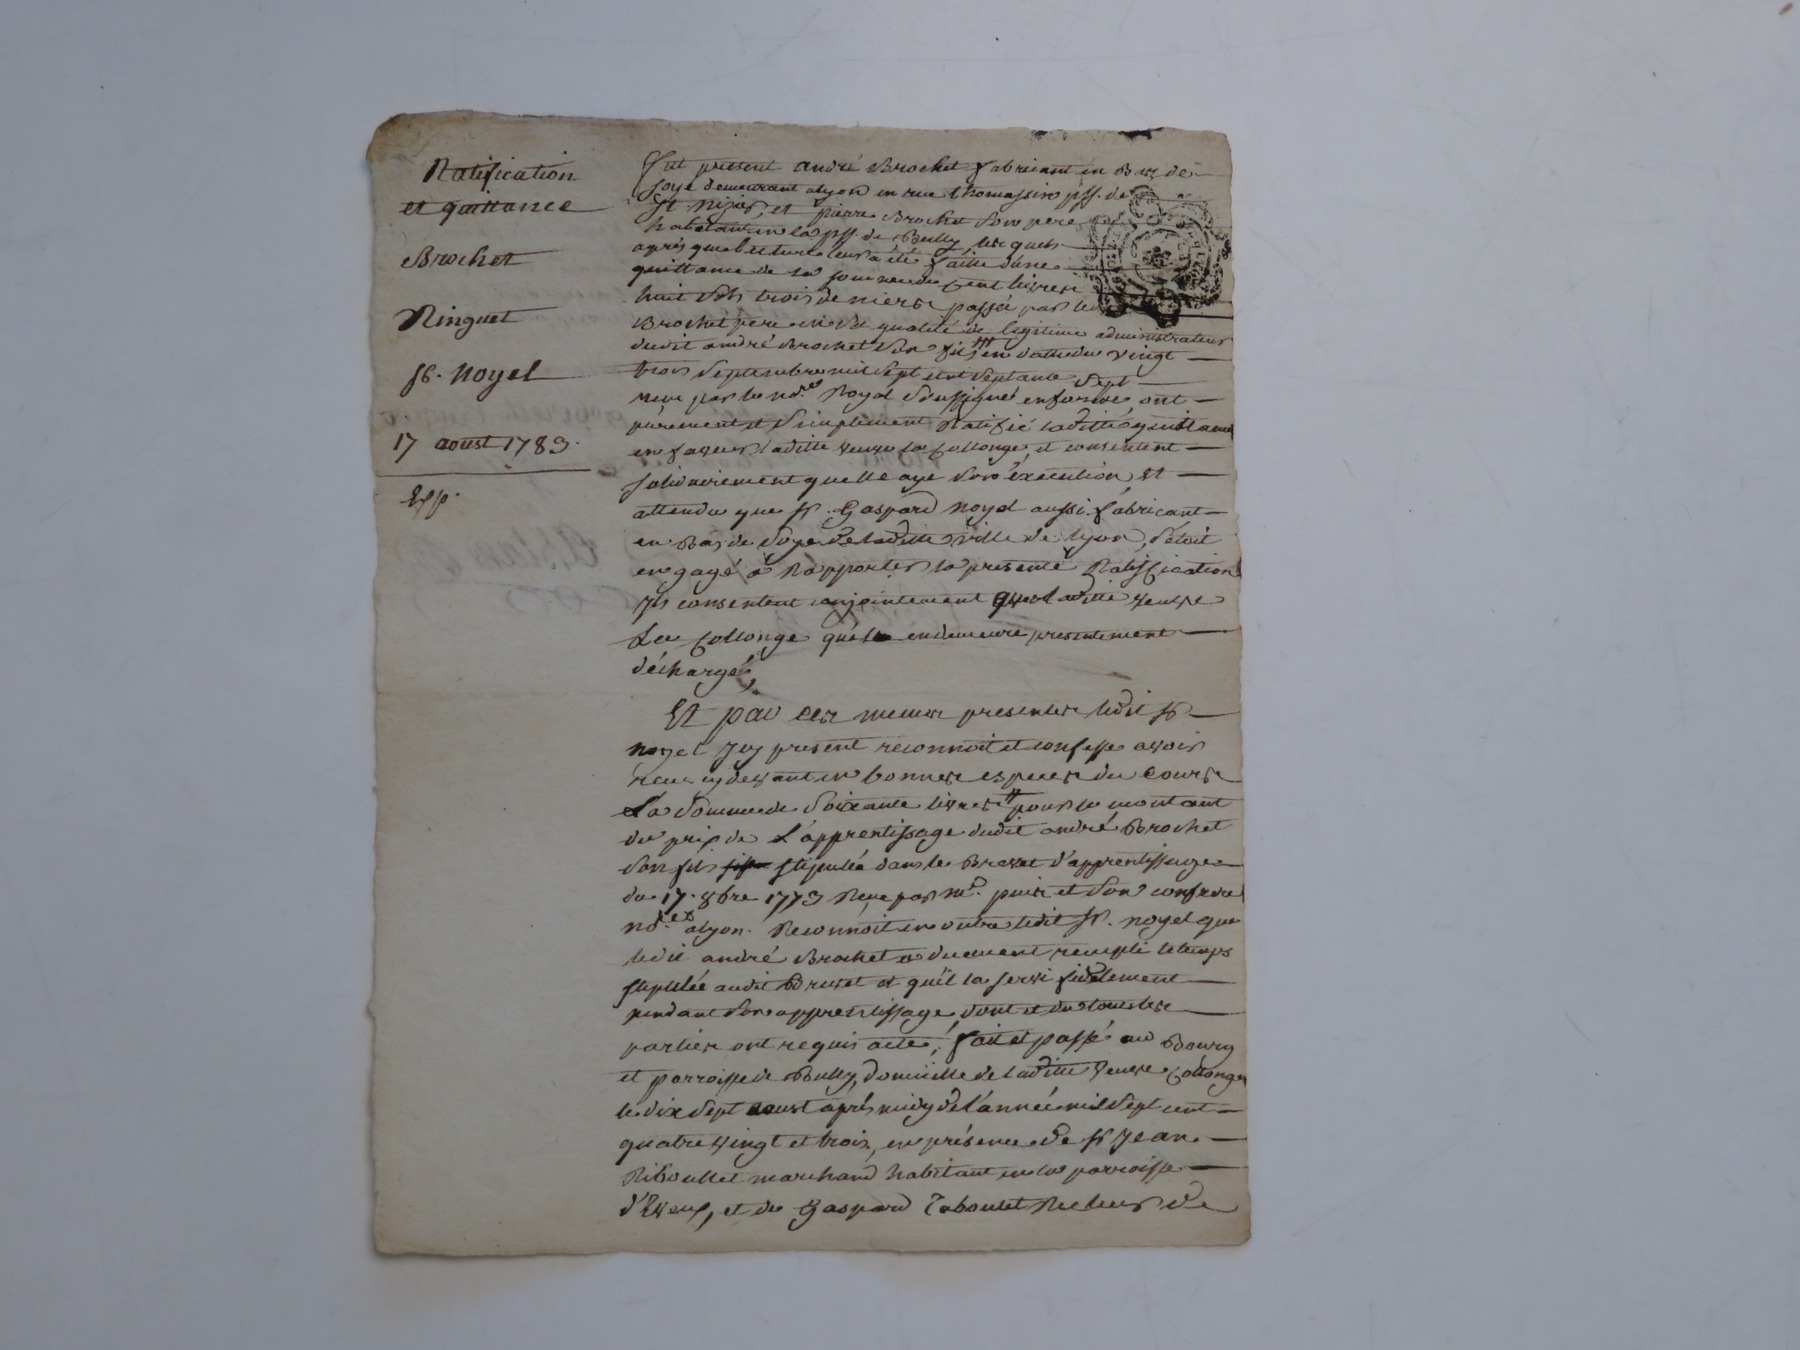 Ratification
et quittance
Brochet
Ringuet
Sr. Noyel
17 aoust 1783.
Exp.
Fut present andré Brochet fabricant en Bas de
soye demeurant alyon en rue thomassin pss. de
St. nizier, et pierre Brochet son pere
habitant en la pss. de Bully, lesquels
après que lecture leur a été faitte d'une
quittance de la somme de cent livres
huit sols trois deniers passée par led
Brochet pere en sa qualité de legitime administrateur
dudit andré Brochet son fils en datte du vingt
trois Septembre mil sept cent septante sept
recue par le nore. Royal soussigné en forme ont
purement et simplement Ratifié laditte quittance
en faveur laditte veuve la Collonge, et consentent
solidairement quelle aye son éxécution, et
attendu que sr. Gaspard noyel aussi fabricant
en Bas de soye de laditte ville de lyon, s'étoit
engagé à Rapporter la presente Ratification
Ils consentent conjointement que laditte veuve
La Collonge qu'il en demeure presentement
déchargé,
Et par ces memes presentes ledit sr
noyel Icy present reconnoit et confesse avoir
recu cydevant en bonnes especes du cours
La somme de soixante livres pour le montant
du prix de L'apprentissage dudit andré Brochet
son fils stipulée dans le Brevet d'apprentissage
du 17. 8bre 1773 Recu par me. et son confrere
nores alyon. Reconnoit en outre ledit sr. noyel que
ledit andré Brochet a duement rempli le temps
stipulée audit Brevet et qu'il la servi fidelement
pendant son apprentissage, dont et du tout les
parties ont requis acte, fait et passé au Bourg
et parroisse de Bully, domicille de laditte veuve Collonge
le dix sept aoust après midy de l'année mil sept cent
quatre vingt et trois, en présence de sr Jean
Riboullet marchand habitant en la parroisse
d'Eveux, et de Gaspard Taboulet Recteur de